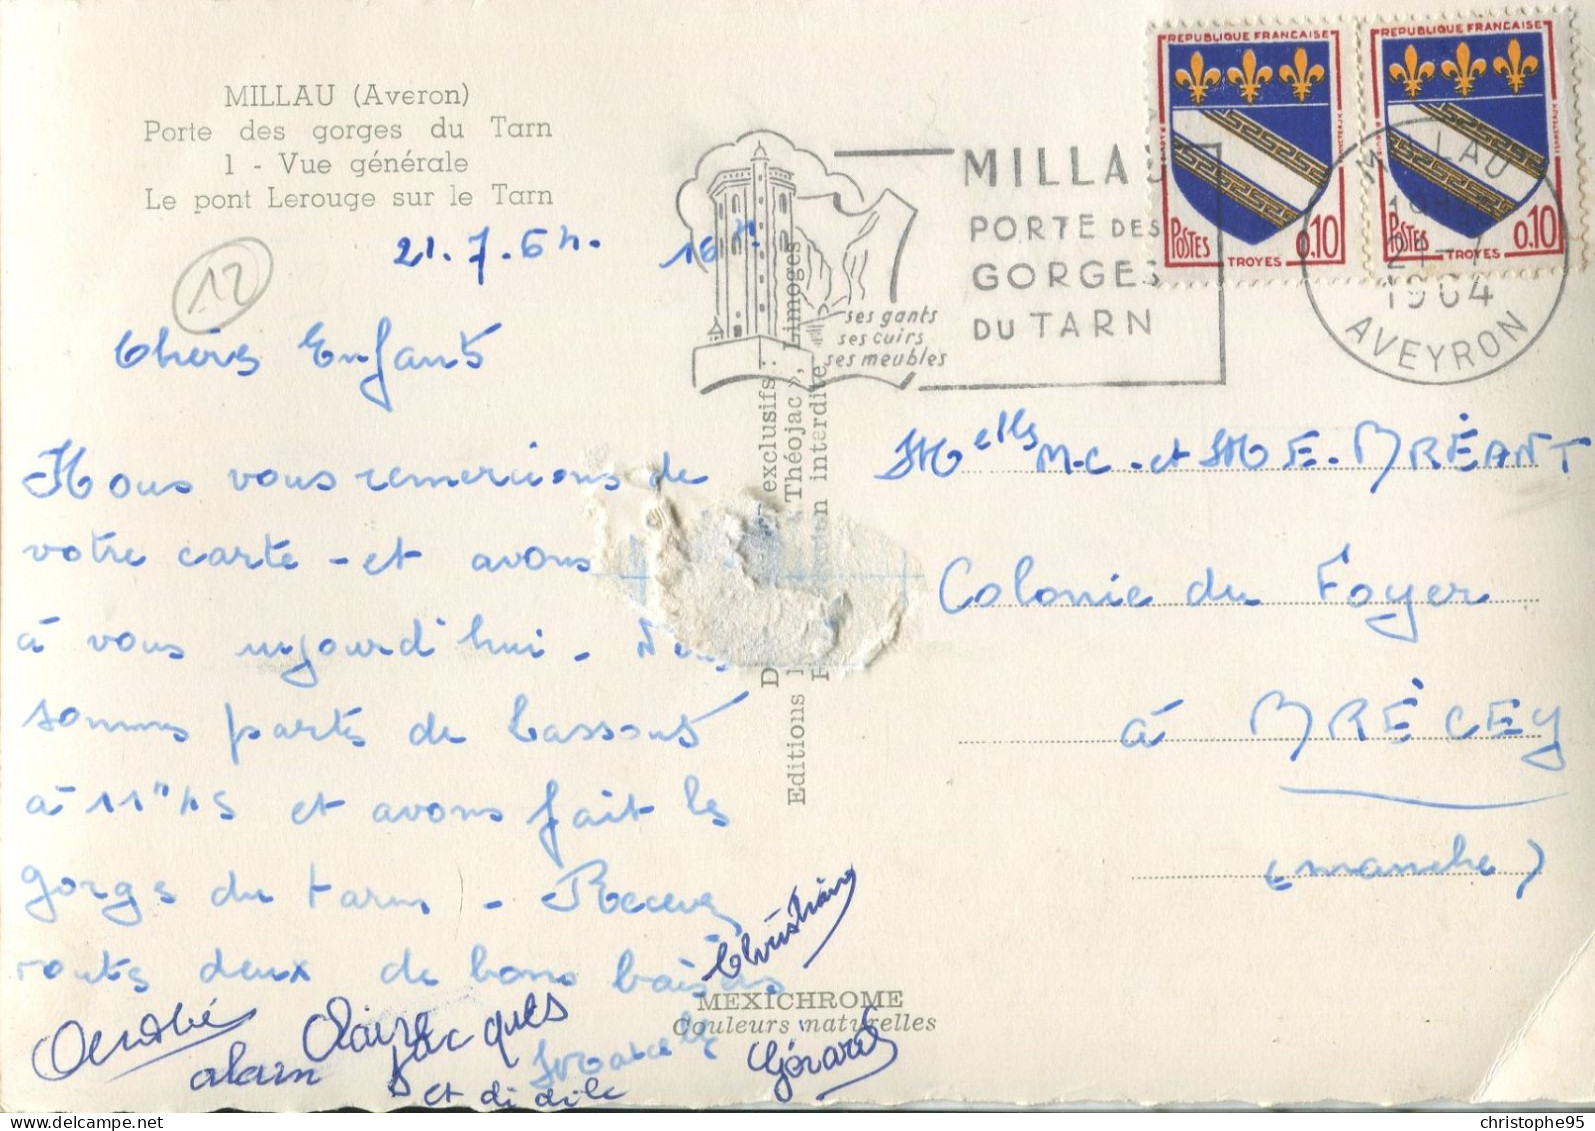 MILLAU (Averon)
Porte des gorges du Tarn
1 - Vue générale
Le pont Lerouge sur le Tarn
21.7.64. 16h
12
Chères Enfants
Nous vous remercions de
votre carte - et avons
à vous aujourd'hui - Nous
sommes partis de
à 11h45 et avons fait les
gorges du tarn - Recevez
toutes deux de bons baisers
Christiane
André
Claire
Jacques
alain
Marcelle
et didile
Gérard
MEXICHROME
Couleurs naturelles
exclusifs :
Editions "Théojac", Limoges
interdite
MILLAU
PORTE DES
GORGES
DU TARN
ses gants
ses cuirs
ses meubles
REPUBLIQUE FRANÇAISE
POSTES
TROYES
0,10
REPUBLIQUE FRANÇAISE
POSTES
TROYES
0,10
MILLAU
21 - 7
1964
AVEYRON
Melles M-C - et M E - BRÉANT
Colonie du Foyer
à BRÈCEY
(manche)
christophe95